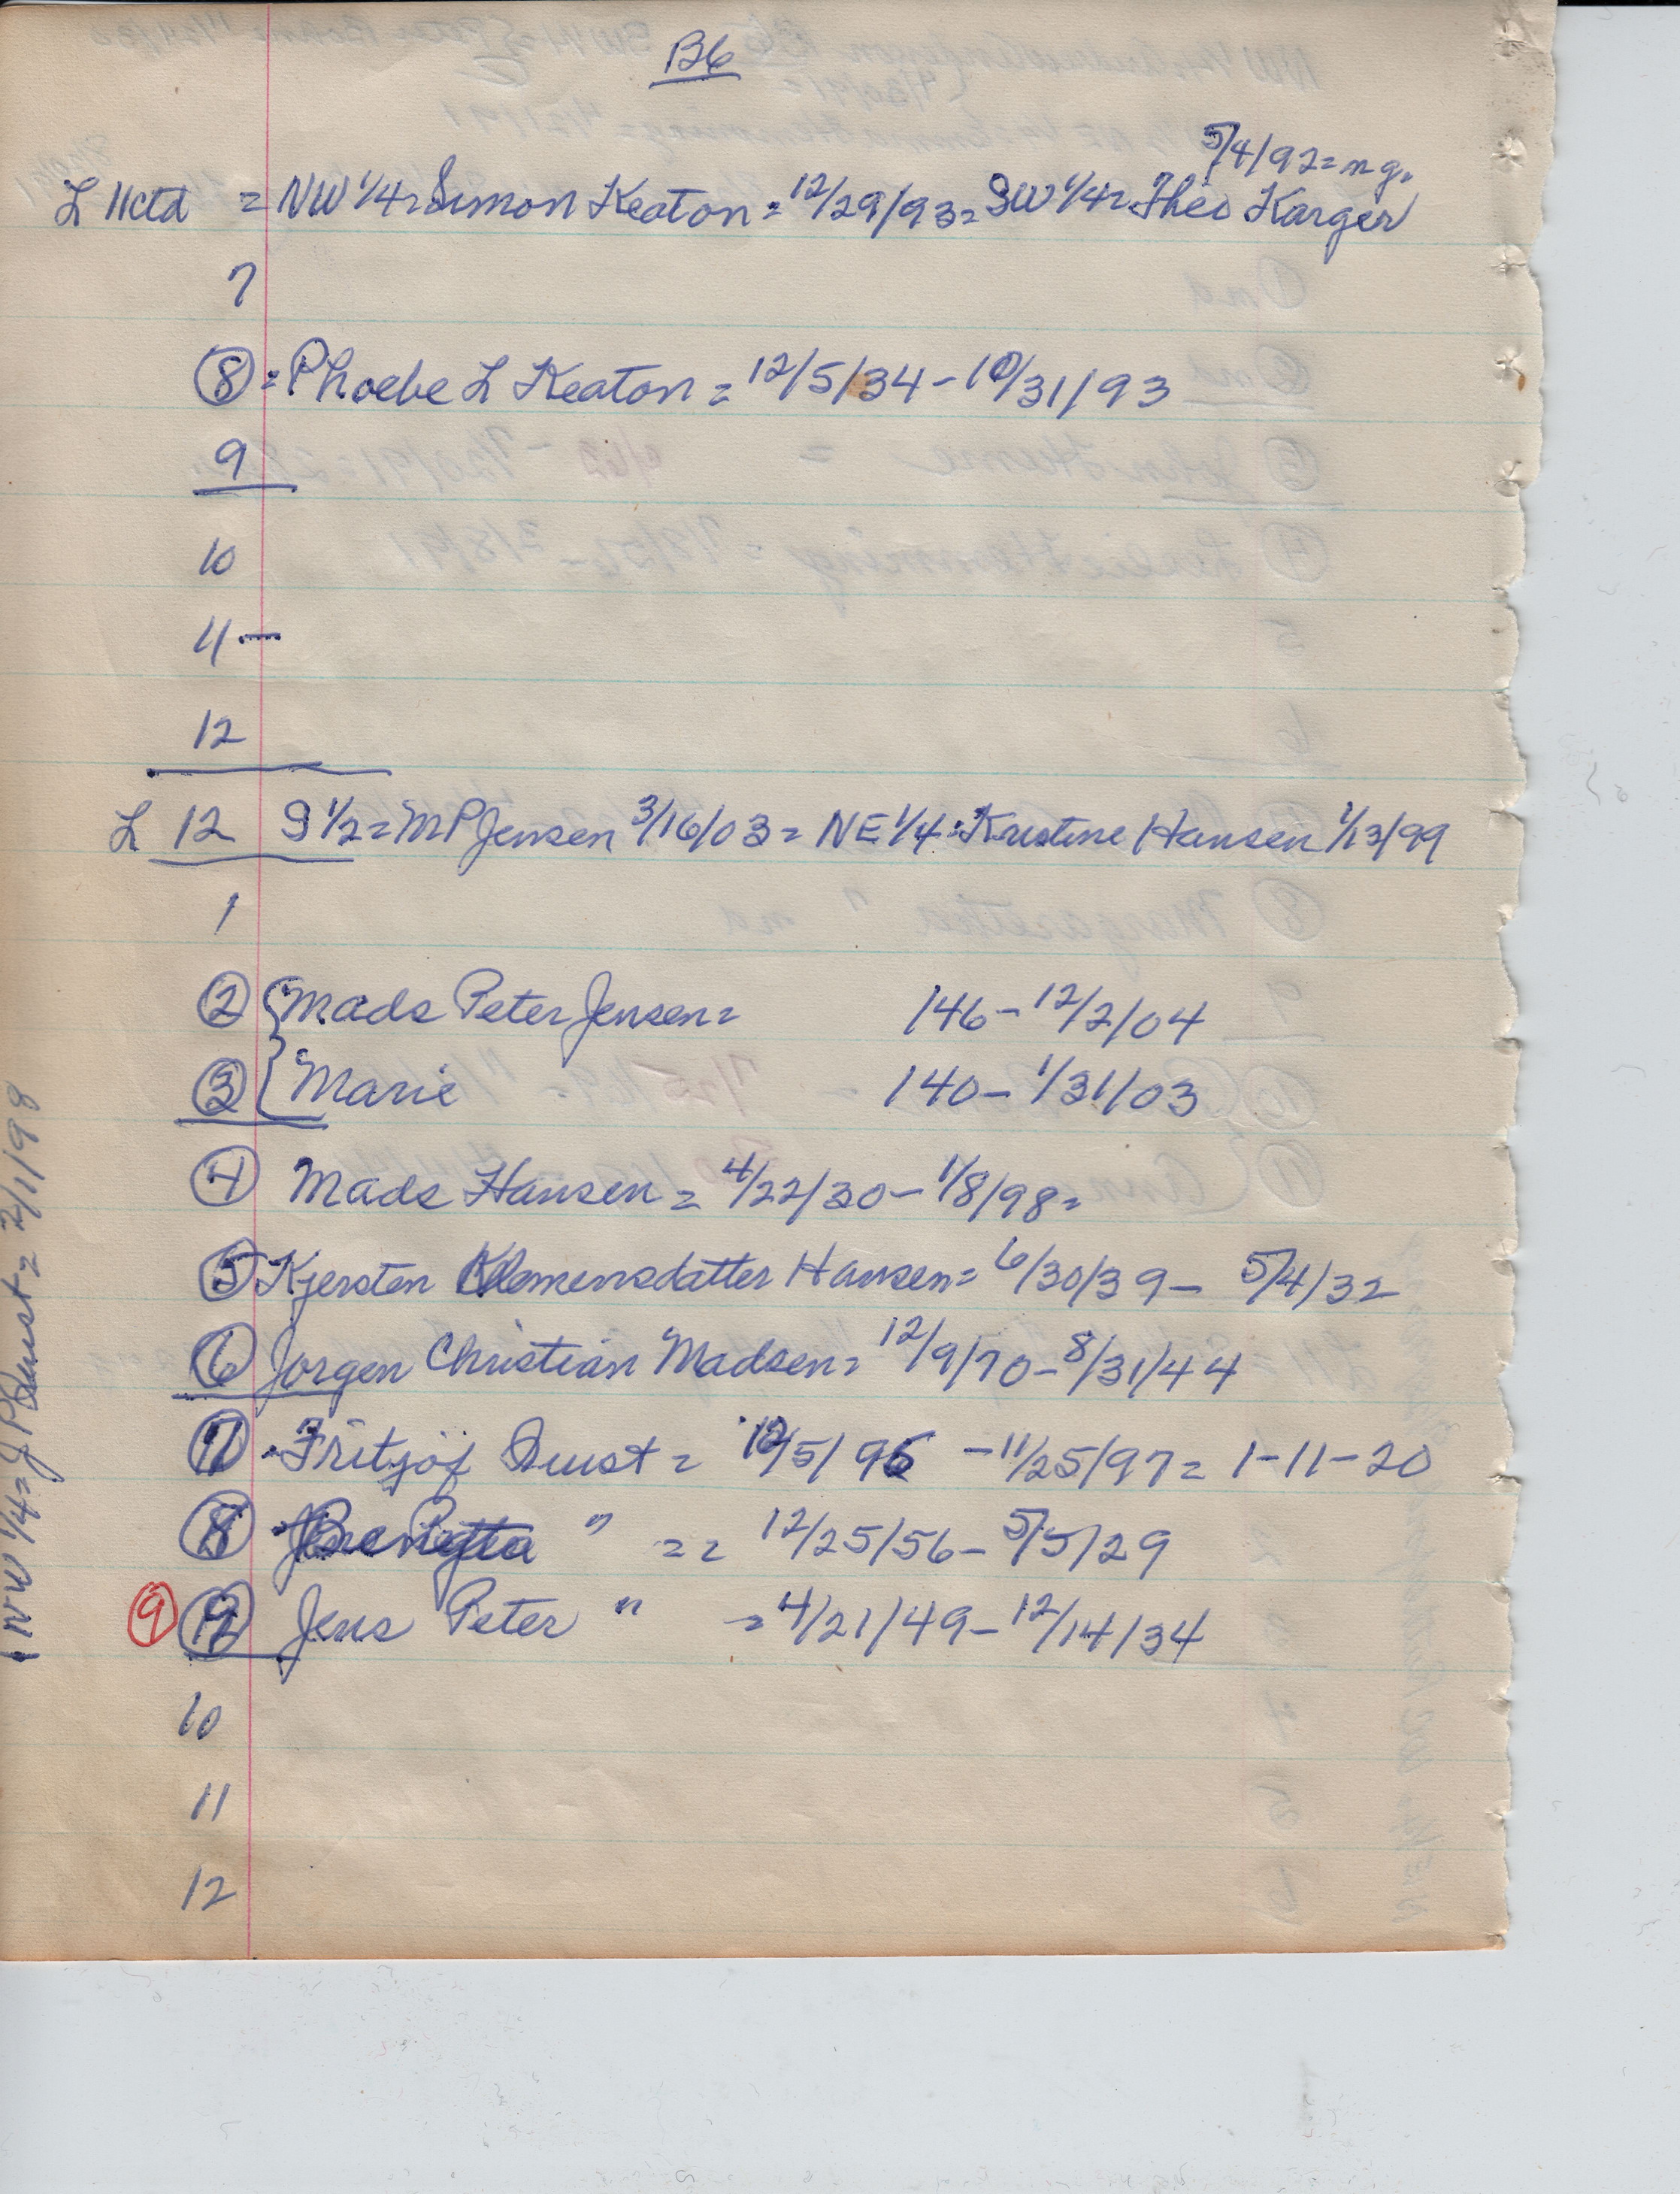 B6
5/4/92 = n g.
L 11ctd = NW 1/4 = Simon Keaton = 12/29/93 = SW 1/4 = Theo Karger
7
8 = Phoebe L Keaton = 12/5/34 - 10/31/93
9
10
11 -
12
L 12 S 1/2 = M P Jensen 3/16/03 = NE 1/4 = Kristine Hansen 1/13/99
1
2 { Mads Peter Jensen = 146 - 12/2/04
3 { Marie 140 - 1/31/03
4 Mads Hansen = 4/22/30 - 1/8/98 =
5 Kjersten Klemensdatter Hansen = 6/30/39 - 5/4/32
6 Jorgen Christian Madsen = 12/9/70 - 8/31/44
7 = Fritjof = 12/5/95 - 11/25/97 = 1-11-20
8 = " = = 12/25/56 - 5/5/29
9 9 Jens Peter " = 4/21/49 - 12/14/34
10
11
12
NW 1/4 = J P = 2/1/98